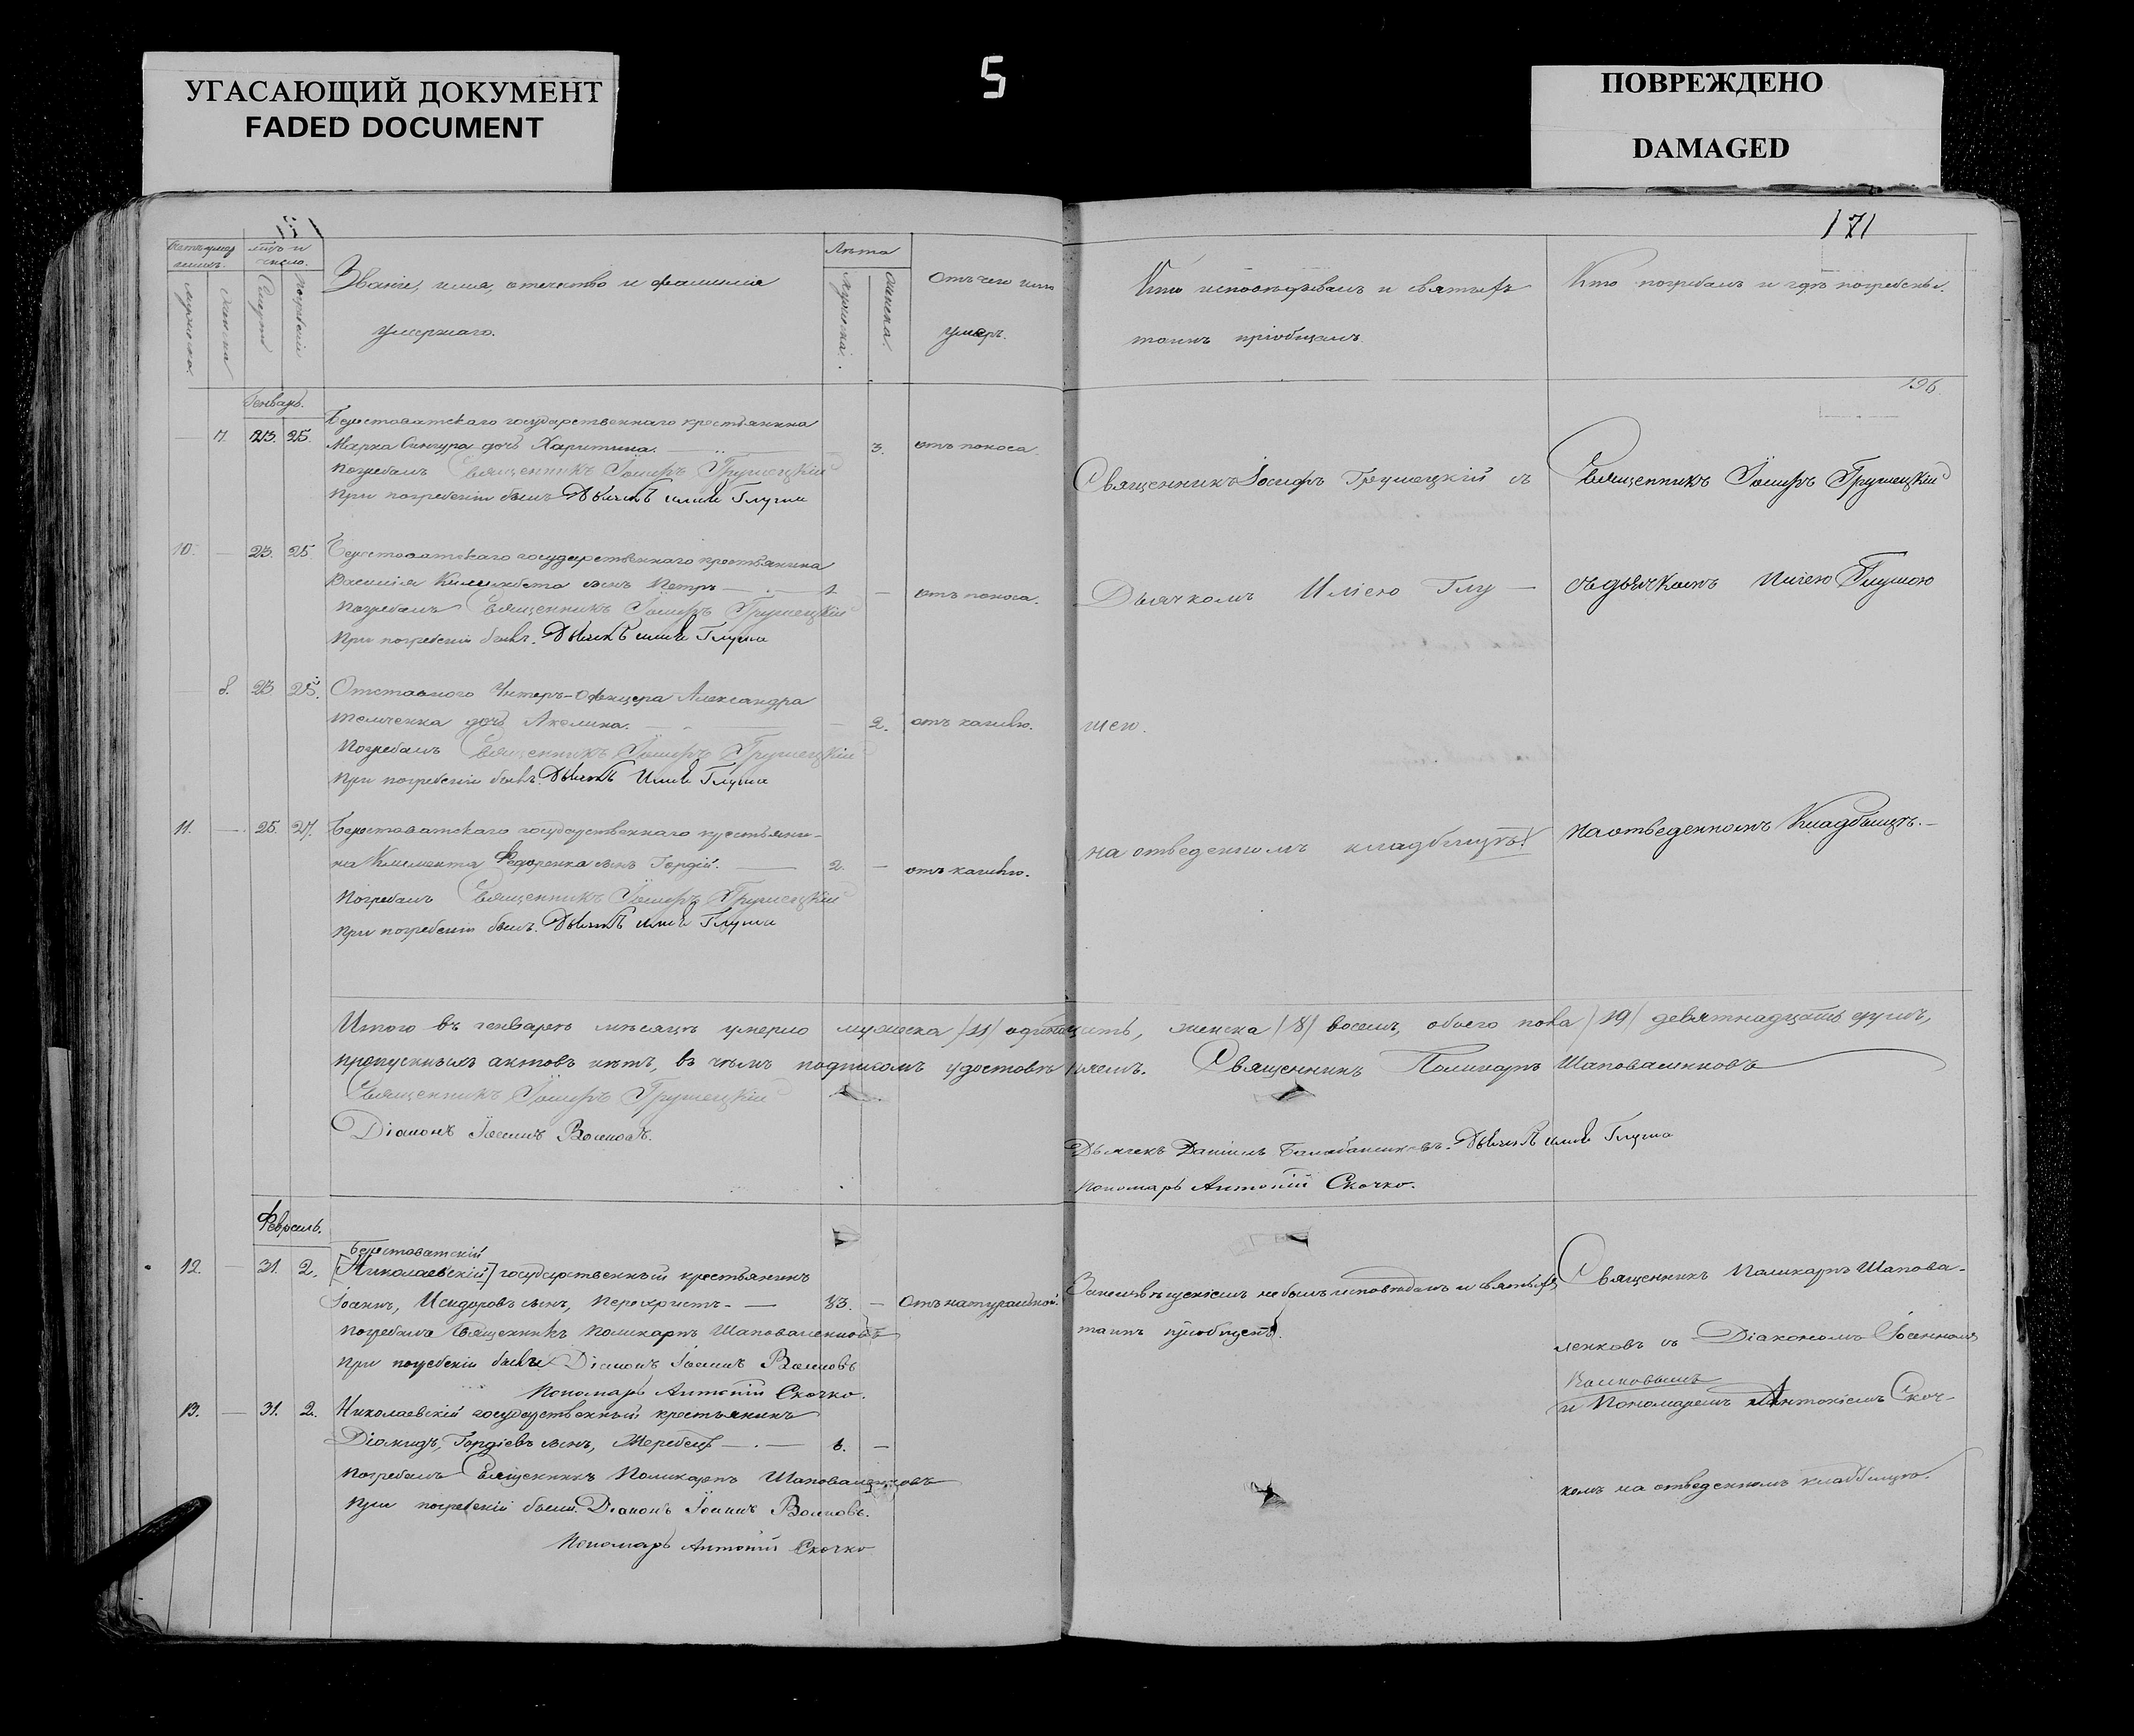 УГАСАЮЩИЙ ДОКУМЕНТ
FADED DOCUMENT
5
ПОВРЕЖДЕНО
DAMAGED
171
Званіе, имя, отечество и фамилія
умершаго.
Лѣта
Мужеска.
Женска.
Отъ чего
умеръ.
Кто исповѣдывалъ и святыхъ
таинъ пріобщалъ
Кто погребалъ и гдѣ погребены.
196
Генварь.
— 7. 23. 25. Берестоватскаго государственнаго крестьянина
Марка Сингура дочь Харитина. — 3. отъ поноса.
Погребалъ Священникъ Іосифъ Грушецкій
При погребеніи былъ Дьячекъ Илія Глуша
10. — 23. 25 Берестоватскаго государственнаго крестьянина
Василія сынъ Петръ — 1 — отъ поноса.
Погребалъ Священникъ Іосифъ Грушецкій
При погребеніи былъ. Дьячекъ Илія Глуша
— 8. 23 25. Отставного Унтеръ-Офицера Александра
дочь Акелина. — 2. отъ кашлю.
Погребалъ Священникъ Іосифъ Грушецкій
При погребеніи былъ. Дьячекъ Илія Глуша
11. — 25. 27. Берестоватскаго государственнаго крестьяни-
на Климента Федоренка сынъ Гордій. — 2. — отъ кашлю.
Погребалъ Священникъ Іосифъ Грушецкій
При погребеніи былъ. Дьячекъ Илія Глуша
Священникъ Іосифъ Грушецкій съ
Дьячкомъ Иліею Глу —
шею.
на отведенномъ кладбищѣ.
Священникъ Іосифъ Грушецкій
съ дьячкомъ Иліею Глушою
на отведенномъ Кладбищѣ.—
Итого въ генварѣ мѣсяцѣ умерло мужеска /11/ одинадцать, женска /8/ восемъ, обоего пола /19/ девятнадцать душъ,
пропускныхъ актовъ нѣтъ, въ чемъ подписомъ удостовѣряемъ. Священникъ Поликарпъ Шаповаленковъ
Священникъ Іосифъ Грушецкій
Діаконъ Іоаннъ Волковъ.
Дьячекъ Даніилъ Дьячекъ Илія Глуша
Пономарь Антоній Скочко.
Февраль.
Берестоватскій
12. — 31. 2. [Николаевскій] государственный крестьянинъ
Іоаннъ, Исидоровъ сынъ, Перехристъ — 83. — Отъ натуральной.
Погребалъ Священникъ Поликарпъ Шаповаленковъ
При погребеніи были Діаконъ Іоаннъ Волковъ
Пономарь Антоній Скочко.
13. — 31. 2. Николаевскій государственный крестьянинъ
Діомидъ, Гордіевъ сынъ, Жеребецъ — —
Погребалъ Священникъ Поликарпъ Шаповаленковъ
При погребеніи были. Діаконъ Іоаннъ Волковъ.
Пономарь Антоній Скочко
не былъ исповѣданъ и святыхъ
таинъ пріобщенъ.
Священникъ Поликарпъ Шапова-
ленковъ съ Діакономъ Іоанномъ
Волковымъ
и Пономаремъ Антоніемъ Скоч-
комъ на отведенномъ кладбищѣ.